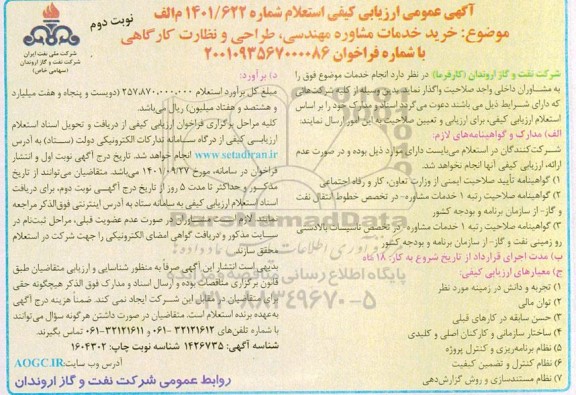 آگهی عمومی ارزیابی کیفی استعلام شماره ۱۴۰۱/۶۲۲ م‌الف
نوبت دوم
موضوع: خرید خدمات مشاوره مهندسی، طراحی و نظارت کارگاهی
با شماره فراخوان ۲۰۰۱۰۹۳۵۶۷۰۰۰۰۸۶
شرکت ملی نفت ایران
شرکت نفت و گاز اروندان
(سهامی خاص)
شرکت نفت و گاز اروندان (کارفرما) در نظر دارد انجام خدمات موضوع فوق را
به مشاوران داخلی واجد صلاحیت واگذار نماید. بدین وسیله از کلیه شرکت‌هائی
که دارای شرایط ذیل می باشند دعوت می‌گردد اسناد و مدارک خود را بر اساس
استعلام ارزیابی کیفی، برای ارزیابی و تعیین صلاحیت به این طور ارسال نمایند:
الف) مدارک و گواهینامه‌های لازم:
شرکت‌کنندگان در استعلام می‌بایست دارای موارد ذیل بوده و در صورت عدم
ارائه، ارزیابی کیفی آنها انجام نخواهد شد.
۱) گواهینامه تأیید صلاحیت ایمنی از وزارت تعاون، کار و رفاه اجتماعی
۲) گواهینامه صلاحیت رتبه ۱ خدمات مشاوره- در تخصص خطوط انتقال نفت
و گاز- از سازمان برنامه و بودجه کشور
۳) گواهینامه صلاحیت رتبه ۱ خدمات مشاوره- در تخصص تاسیسات بالادستی
رو زمینی نفت و گاز- از سازمان برنامه و بودجه کشور
ب) مدت اجرای قرارداد از تاریخ شروع به کار: ۱۸ ماه
ج) معیارهای ارزیابی کیفی:
۱) تجربه و دانش در زمینه مورد نظر
۲) توان مالی
۳) حسن سابقه در کارهای قبلی
۴) ساختار سازمانی و کارکنان اصلی و کلیدی
۵) نظام برنامه‌ریزی و کنترل پروژه
۶) نظام کنترل و تضمین کیفیت
۷) نظام مستندسازی و روش گزارش‌دهی
د) برآورد:
مبلغ کل برآورد استعلام ۲۵۷،۸۷۰،۰۰۰،۰۰۰ (دویست و پنجاه و هفت میلیارد
و هشتصد و هفتاد میلیون) ریال می‌باشد.
کلیه مراحل برگزاری فراخوان ارزیابی کیفی از دریافت و تحویل اسناد استعلام
ارزیابی کیفی از درگاه سامانه تدارکات الکترونیکی دولت (ستاد) به آدرس
www.setadiran.ir انجام خواهد شد. تاریخ درج آگهی نوبت اول و انتشار
فراخوان در سامانه، مورخ ۱۴۰۱/۰۹/۲۷ می‌باشد. متقاضیان می‌توانند از تاریخ
مذکور و حداکثر تا مدت ۵ روز از تاریخ درج آگهی نوبت دوم، برای دریافت
اسناد استعلام ارزیابی کیفی به سامانه ستاد به آدرس اینترنتی فوق‌الذکر مراجعه
نمایند. لازم است متقاضیان در صورت عدم عضویت قبلی، مراحل ثبت‌نام در
سایت مذکور و دریافت گواهی امضای الکترونیکی را جهت شرکت در استعلام
محقق سازند.
بدیهی است انتشار این آگهی صرفا به منظور شناسایی و ارزیابی متقاضیان طبق
قانون برگزاری مناقصات بوده و ارسال اسناد و مدارک فوق الذکر هیچگونه حقی
برای متقاضیان در مقابل این شرکت ایجاد نمی کند. ضمناً هزینه درج آگهی
به عهده برنده استعلام است. متقاضیان در صورت داشتن هرگونه سؤال می‌توانند
با شماره تلفن‌های ۳۲۱۲۱۶۱۲-۰۶۱ و ۳۲۱۲۱۶۱۱-۰۶۱ تماس بگیرند.
شناسه آگهی: ۱۴۲۶۷۳۵ شناسه نوبت چاپ: ۱۶۰۴۳۰۲
آدرس وب سایت: AOGC.IR
روابط عمومی شرکت نفت و گاز اروندان
ParsNamadData
پایگاه اطلاع رسانی مناقصه و مزایده
۰۲۱-۸۸۳۴۹۶۷۰-۵